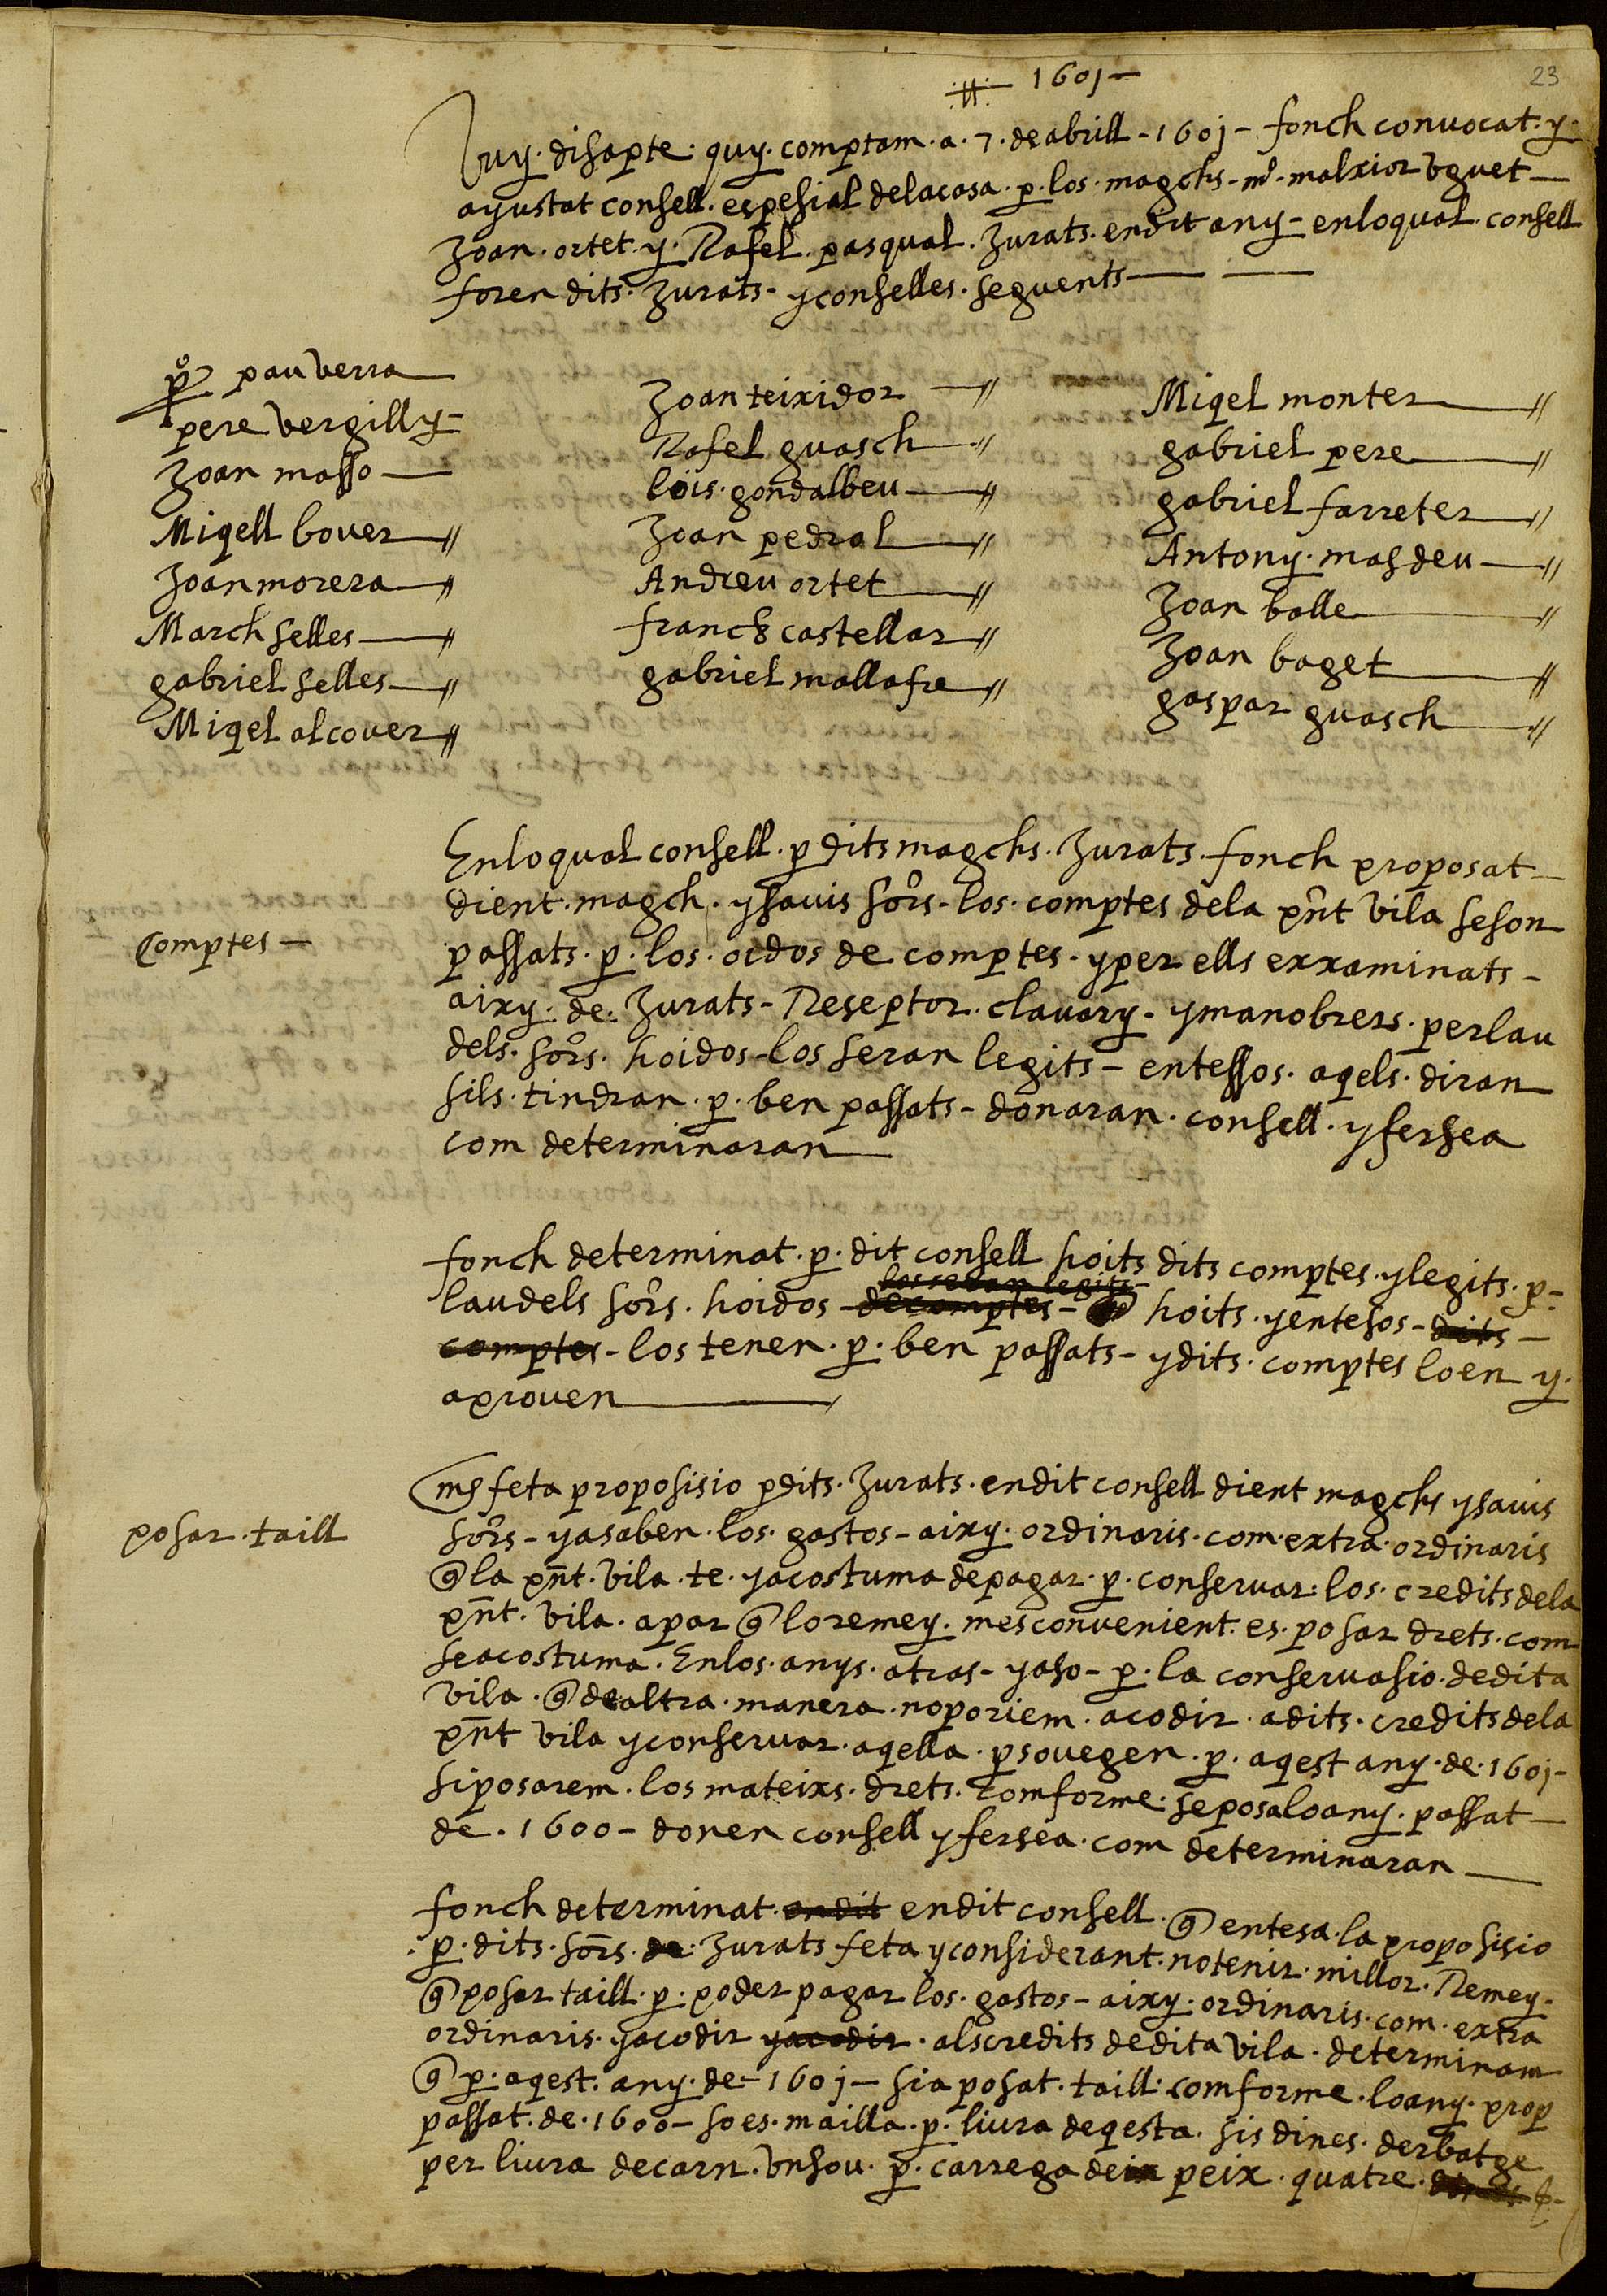 1601
23
Vuy disapte quy comptam a 7 de abrill 1601 fonch convocat y
ayustat consell espesial dela casa p los magchs mº malxior uguet
Joan ortet y Rafel pasqual Jurats en dit any en lo qual consell
foren dits Jurats y conselles seguents
pº pau verra
pere vergilly
Joan masso
Miqell bover
Joan morera
March selles
gabriel selles
Miqel alcover
Joan teixidor
Rafel guasch
lois gondalbeu
Joan pedral
Andreu ortet
franch castellar
gabriel mallafre
Miqel monter
gabriel pere
gabriel farreter
Antony masdeu
Joan balle
Joan baget
gaspar guasch
Enloqual consell p dits magchs Jurats fonch proposat
dient magch y savis sors los comptes dela pnt vila se son
Comptes
passats p los oidos de comptes y per ells exxaminats
aixy de Jurats Reseptor clavary y manobrers per lau
dels sors hoidos los seran legits entessos aqels diran
sils tindran p ben passats donaran consell y fersea
com determinaran
fonch determinat p dit consell hoits dits comptes y legits p
los seran legits
laudels sors hoidos de comptes hoits y entesos dits
comptes los tenen p ben passats y dits comptes loen y
aproven
ms feta proposisio p dits Jurats en dit consell dient magchs y savis
posar taill
sors ya saben los gastos aixy ordinaris com extra ordinaris
q la pnt vila te y acostuma de pagar p conservar los credits dela
pnt vila apar q lo remey mes convenient es posar drets com
se acostuma En los anys atras y aso p la conservasio de dita
vila q de altra manera no poriem acodir a dits credits dela
pnt vila y conservar aqella p so vegen p aqest any de 1601
si posarem los mateixs drets comforme se posa lo any passat
de 1600 donen consell y fersea com determinaran
fonch determinat en dit en dit consell q entesa la proposisio
p dits sors de Jurats feta y considerant no tenir millor Remey
q posar taill p poder pagar los gastos aixy ordinaris com extra
ordinaris y acodir y acodir als credits de dita vila determinam
q p aqest any de 1601 sia posat taill comforme lo any prop
passat de 1600 so es mailla p liura de qesta sis dines derbatge
per liura de carn un sou p carrega de peix quatre